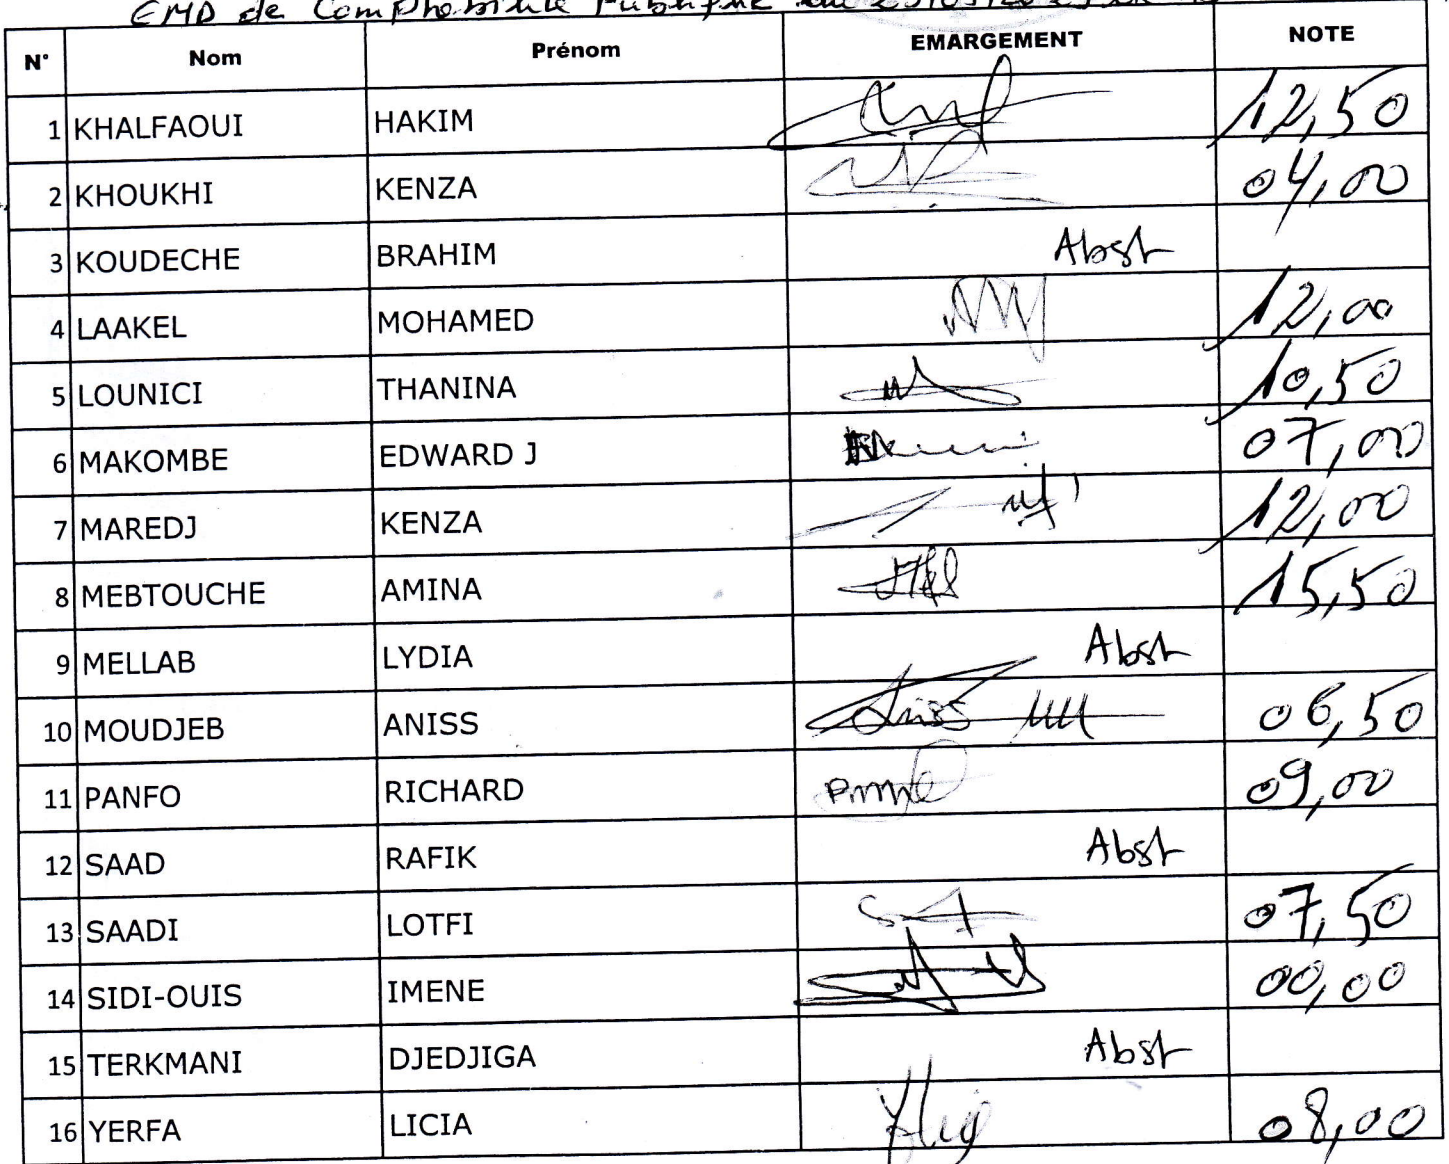 EMD de Comptabilité Publique du
N° Nom Prénom EMARGEMENT NOTE
1 KHALFAOUI HAKIM 12,50
2 KHOUKHI KENZA 04,00
3 KOUDECHE BRAHIM Abst
4 LAAKEL MOHAMED 12,00
5 LOUNICI THANINA 10,50
6 MAKOMBE EDWARD J 07,00
7 MAREDJ KENZA 12,00
8 MEBTOUCHE AMINA 15,50
9 MELLAB LYDIA Abst
10 MOUDJEB ANISS Aniss 06,50
11 PANFO RICHARD 09,00
12 SAAD RAFIK Abst
13 SAADI LOTFI 07,50
14 SIDI-OUIS IMENE 00,00
15 TERKMANI DJEDJIGA Abst
16 YERFA LICIA 08,00